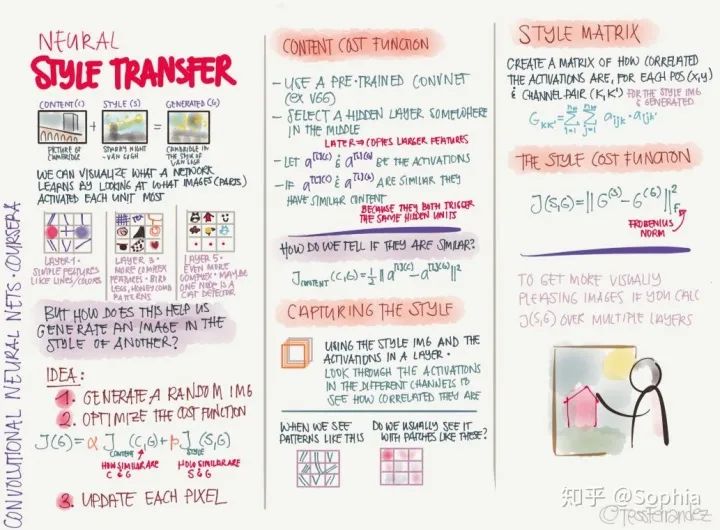 NEURAL
STYLE TRANSFER
CONTENT (C)
STYLE (S)
GENERATED (G)
+
=
PICTURE OF
CAMBRIDGE
STARRY NIGHT
- VAN GOGH
CAMBRIDGE IN
THE STYLE OF
VAN GOGH
WE CAN VISUALIZE WHAT A NETWORK
LEARNS BY LOOKING AT WHAT IMAGES (PARTS)
ACTIVATED EACH UNIT MOST
LAYER 1 -
SIMPLE FEATURES
LIKE LINES/COLORS
LAYER 3 -
MORE COMPLEX
FEATURES - BIRD
LEGS, HONEYCOMB
PATTERNS
LAYER 5 -
EVEN MORE
COMPLEX - MAYBE
ONE NODE IS A
CAT DETECTOR
BUT HOW DOES THIS HELP US
GENERATE AN IMAGE IN THE
STYLE OF ANOTHER?
IDEA:
1. GENERATE A RANDOM IMG
2. OPTIMIZE THE COST FUNCTION
J(G) = α J CONTENT (C,G) + β J STYLE (S,G)
HOW SIMILAR ARE
C & G
HOW SIMILAR ARE
S & G
3. UPDATE EACH PIXEL
CONVOLUTIONAL NEURAL NETS · COURSERA
CONTENT COST FUNCTION
- USE A PRE-TRAINED CONVNET
(EX VGG)
- SELECT A HIDDEN LAYER SOMEWHERE
IN THE MIDDLE
LATER → COPIES LARGER FEATURES
- LET a[l](C) & a[l](G) BE THE ACTIVATIONS
- IF a[l](C) & a[l](G) ARE SIMILAR THEY
HAVE SIMILAR CONTENT
BECAUSE THEY BOTH TRIGGER
THE SAME HIDDEN UNITS
HOW DO WE TELL IF THEY ARE SIMILAR?
J CONTENT (C,G) = ½ || a[l](C) - a[l](G) ||²
CAPTURING THE STYLE
USING THE STYLE IMG AND THE
ACTIVATIONS IN A LAYER.
LOOK THROUGH THE ACTIVATIONS
IN THE DIFFERENT CHANNELS TO
SEE HOW CORRELATED THEY ARE
WHEN WE SEE
PATTERNS LIKE THIS
DO WE USUALLY SEE IT
WITH PATCHES LIKE THESE?
STYLE MATRIX
CREATE A MATRIX OF HOW CORRELATED
THE ACTIVATIONS ARE, FOR EACH POS (X,Y)
& CHANNEL PAIR (K,K') FOR THE STYLE IMG
& GENERATED
G KK' = Σ Σ a ijk · a ijk'
THE STYLE COST FUNCTION
J(S,G) = || G(S) - G(G) ||² F
FROBENIUS
NORM
TO GET MORE VISUALLY
PLEASING IMAGES IF YOU CALC
J(S,G) OVER MULTIPLE LAYERS
知乎 @Sophia
@TessFerrandez